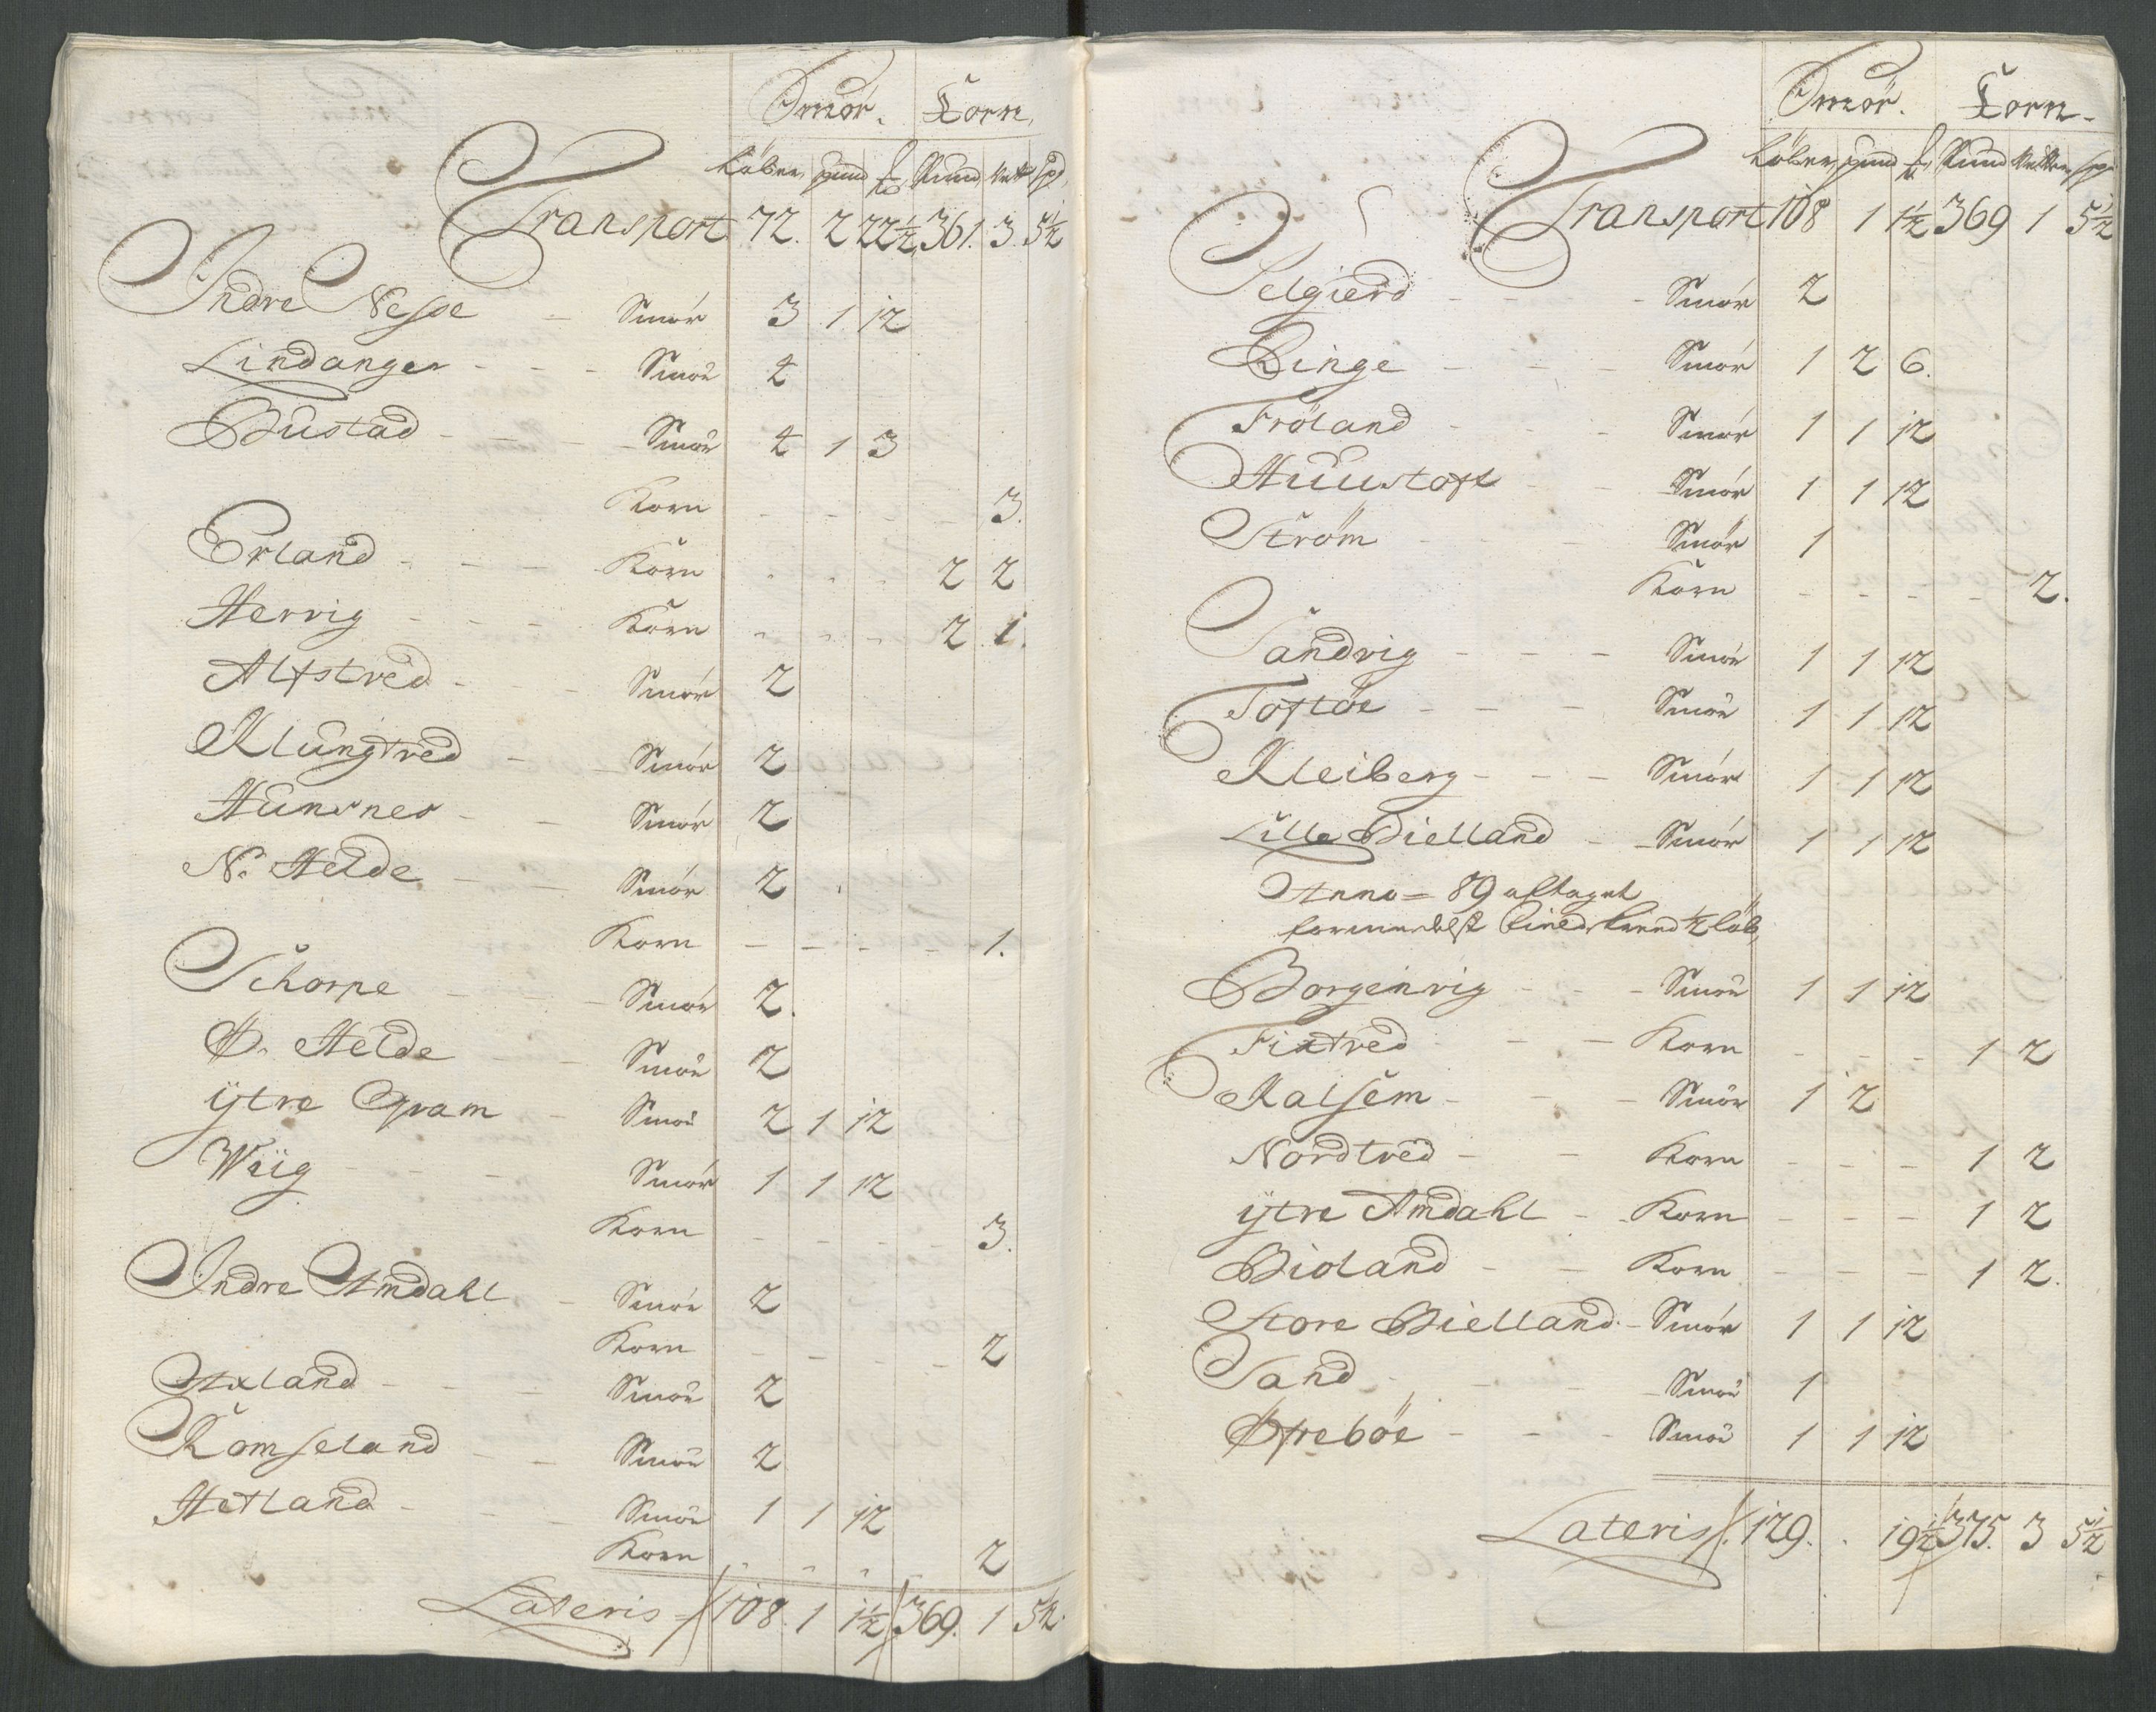 Smör. Corn.
Löber, pund ℔, Pund, Vett Spd,
Transport 72. 2 22½ 361. 3. 5½
Indre Nesse - Smör 3 1 12
Lindanger - - - Smör 4
Bustad - - - Smör 4 1 3
Korn - - - - 3.
Erland - - - Korn - - - 2 2
Hervig - - - Korn - - - 2 1.
Alfstved - - Smör 2
Klungtved - - Smör 2
Hunsnes - - Smör 2
N. Helde - - Smör 2
Korn - - - - 1.
Schorpe - - - Smör 2.
Ø. Helde - - Smör 2
ÿtre Qvam - Smör 2 1 12
Wiig - - - Smör 1 1 12
Korn - - - - - 3.
Indre Amdahl - Smör 2
Korn - - - - 2
Axland - - - Smör 2
Romseland - - Smör 2
Hetland - - - Smör 1 1 12
Korn - - - - 2
Lateris 108. 1 1½ 369. 1 5½.
Smör. Corn.
Löber, pund ℔, Pund Vetter, Spd
Transport 108 1 1½ 369 1 5½
Selgierd - - - Smör 2
Linge - - - Smör 1 2 6.
Fröland - - - Smör 1 1 12
Huustoft - - Smör 1 1 12
Ström - - - Smör 1
Korn - - - - 2.
Sandvig - - - Smör 1 1 12
Toftöe - - - Smör 1 1 12
Kleiberg - - - Smör 1 1 12
Lille Bielland - - Smör 1 1 12
Anno = 89 aftaget
formedelst ½ löb,
Borgenvig - - - Smör 1 1 12
Fixtved - - Korn - - - 1 2
Kalsem - - - Smör 1 2
Nordtved - - Korn - - - 1 2
ÿtre Amdahl - - Korn - - - 1 2
Bioland - - Korn - - - 1 2.
Store Bielland. - Smör 1 1 12
Sand - - - Smör 1
Øfreböe - - - Smör 1 1 12
Lateris 129. . 19½ 375. 3 5½